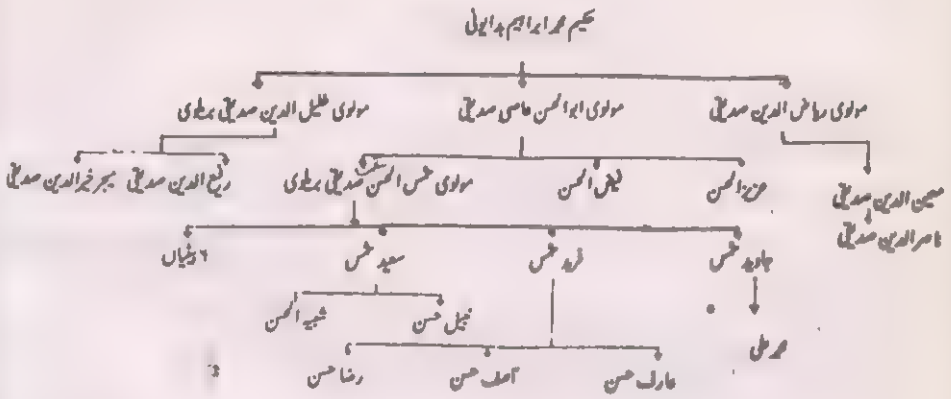 حکیم محمد ابراہیم بدایونی
مولوی ریاض الدین صدیقی مولوی ابوالحسن عاصی صدیقی مولوی خلیل الدین صدیقی بریلوی
معین الدین صدیقی عزیز الحسن فیض الحسن مولوی شمس الحسن صدیقی بریلوی رفیع الدین صدیقی میجر خیر الدین صدیقی
ناصر الدین صدیقی
جاوید شمس فرید شمس سعید شمس ۲ بیٹیاں
محمد علی نبیل حسن شبیہ الحسن
عارف حسن آصف حسن رضا حسن